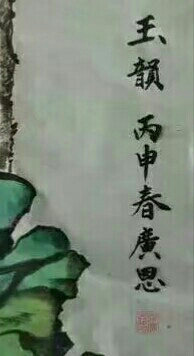 玉韻 丙申春廣思